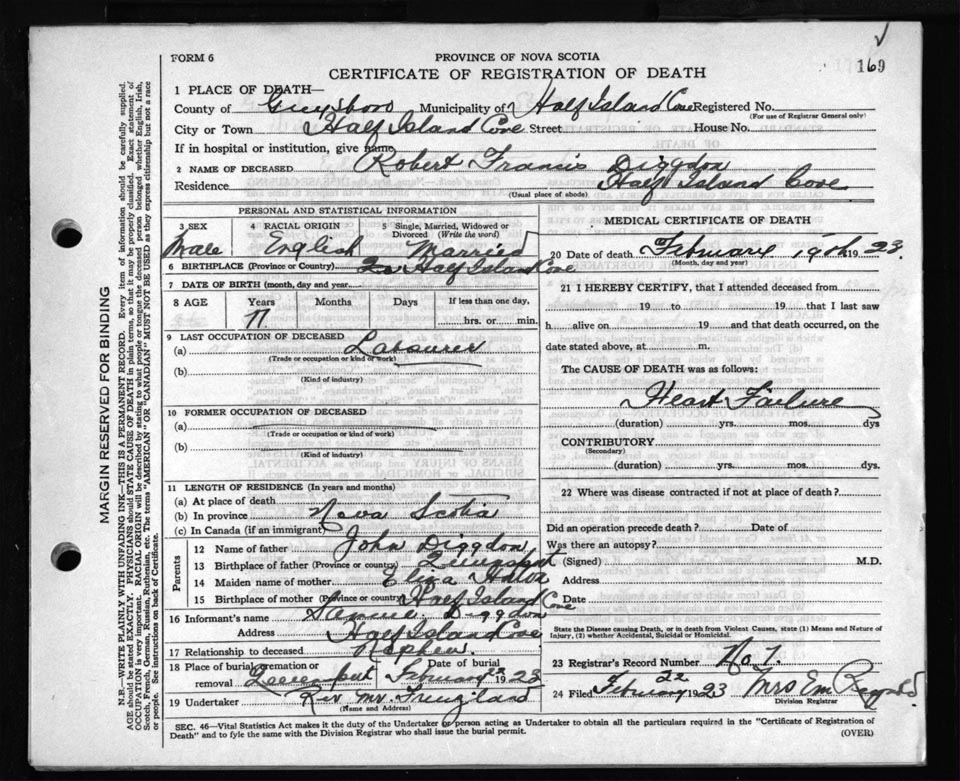 169
FORM 6
PROVINCE OF NOVA SCOTIA
CERTIFICATE OF REGISTRATION OF DEATH
1 PLACE OF DEATH—
County of Guysboro Municipality of Half Island Cove Registered No.
(For use of Registrar General only)
City or Town Half Island Cove Street House No.
If in hospital or institution, give name
2 NAME OF DECEASED Robert Francis Diggdon
Residence Half Island Cove
(Usual place of abode)
PERSONAL AND STATISTICAL INFORMATION
3 SEX Male
4 RACIAL ORIGIN English
5 Single, Married, Widowed or Divorced (Write the word) Married
6 BIRTHPLACE (Province or Country) Half Island Cove
7 DATE OF BIRTH (month, day and year)
8 AGE Years Months Days If less than one day,
hrs. or min.
9 LAST OCCUPATION OF DECEASED
(a) Labourer
(Trade or occupation or kind of work)
(b)
(Kind of industry)
10 FORMER OCCUPATION OF DECEASED
(a)
(Trade or occupation or kind of work)
(b)
(Kind of industry)
11 LENGTH OF RESIDENCE (In years and months)
(a) At place of death
(b) In province Nova Scotia
(c) In Canada (if an immigrant)
Parents
12 Name of father John Diggdon
13 Birthplace of father (Province or country)
14 Maiden name of mother
15 Birthplace of mother (Province or country) Half Island Cove
16 Informant's name Diggdon
Address Half Island Cove
17 Relationship to deceased Nephew
18 Place of burial, cremation or removal Date of burial February 22 1923
19 Undertaker Rev Mr
(Name and Address)
MEDICAL CERTIFICATE OF DEATH
20 Date of death February 19th 1923.
(Month, day and year)
21 I HEREBY CERTIFY, that I attended deceased from
19 to 19, that I last saw
h alive on 19 and that death occurred, on the
date stated above, at m.
The CAUSE OF DEATH was as follows:
Heart Failure
(duration) yrs. mos. dys
CONTRIBUTORY
(Secondary)
(duration) yrs. mos. dys.
22 Where was disease contracted if not at place of death?
Did an operation precede death? Date of
Was there an autopsy?
(Signed) M.D.
Address
Date
State the Disease causing Death, or in death from Violent Causes, state (1) Means and Nature of Injury, (2) whether Accidental, Suicidal or Homicidal.
23 Registrar's Record Number No 7.
24 Filed February 22 1923 Mrs Em
Division Registrar
SEC. 46—Vital Statistics Act makes it the duty of the Undertaker or person acting as Undertaker to obtain all the particulars required in the "Certificate of Registration of
Death" and to fyle the same with the Division Registrar who shall issue the burial permit.
(OVER)
MARGIN RESERVED FOR BINDING
N.B.—WRITE PLAINLY WITH UNFADING INK—THIS IS A PERMANENT RECORD. Every item of information should be carefully supplied.
AGE should be stated EXACTLY. PHYSICIANS should STATE CAUSE OF DEATH in plain terms, so that it may be properly classified. Exact statement of
OCCUPATION is very important. RACIAL ORIGIN will be described by stating to what people or tongue the deceased person belonged whether English, Irish,
Scotch, French, German, Russian, Ruthenian, etc. The terms "AMERICAN" or "CANADIAN" MUST NOT BE USED as they express citizenship but not a race
or people. See instructions on back of Certificate.